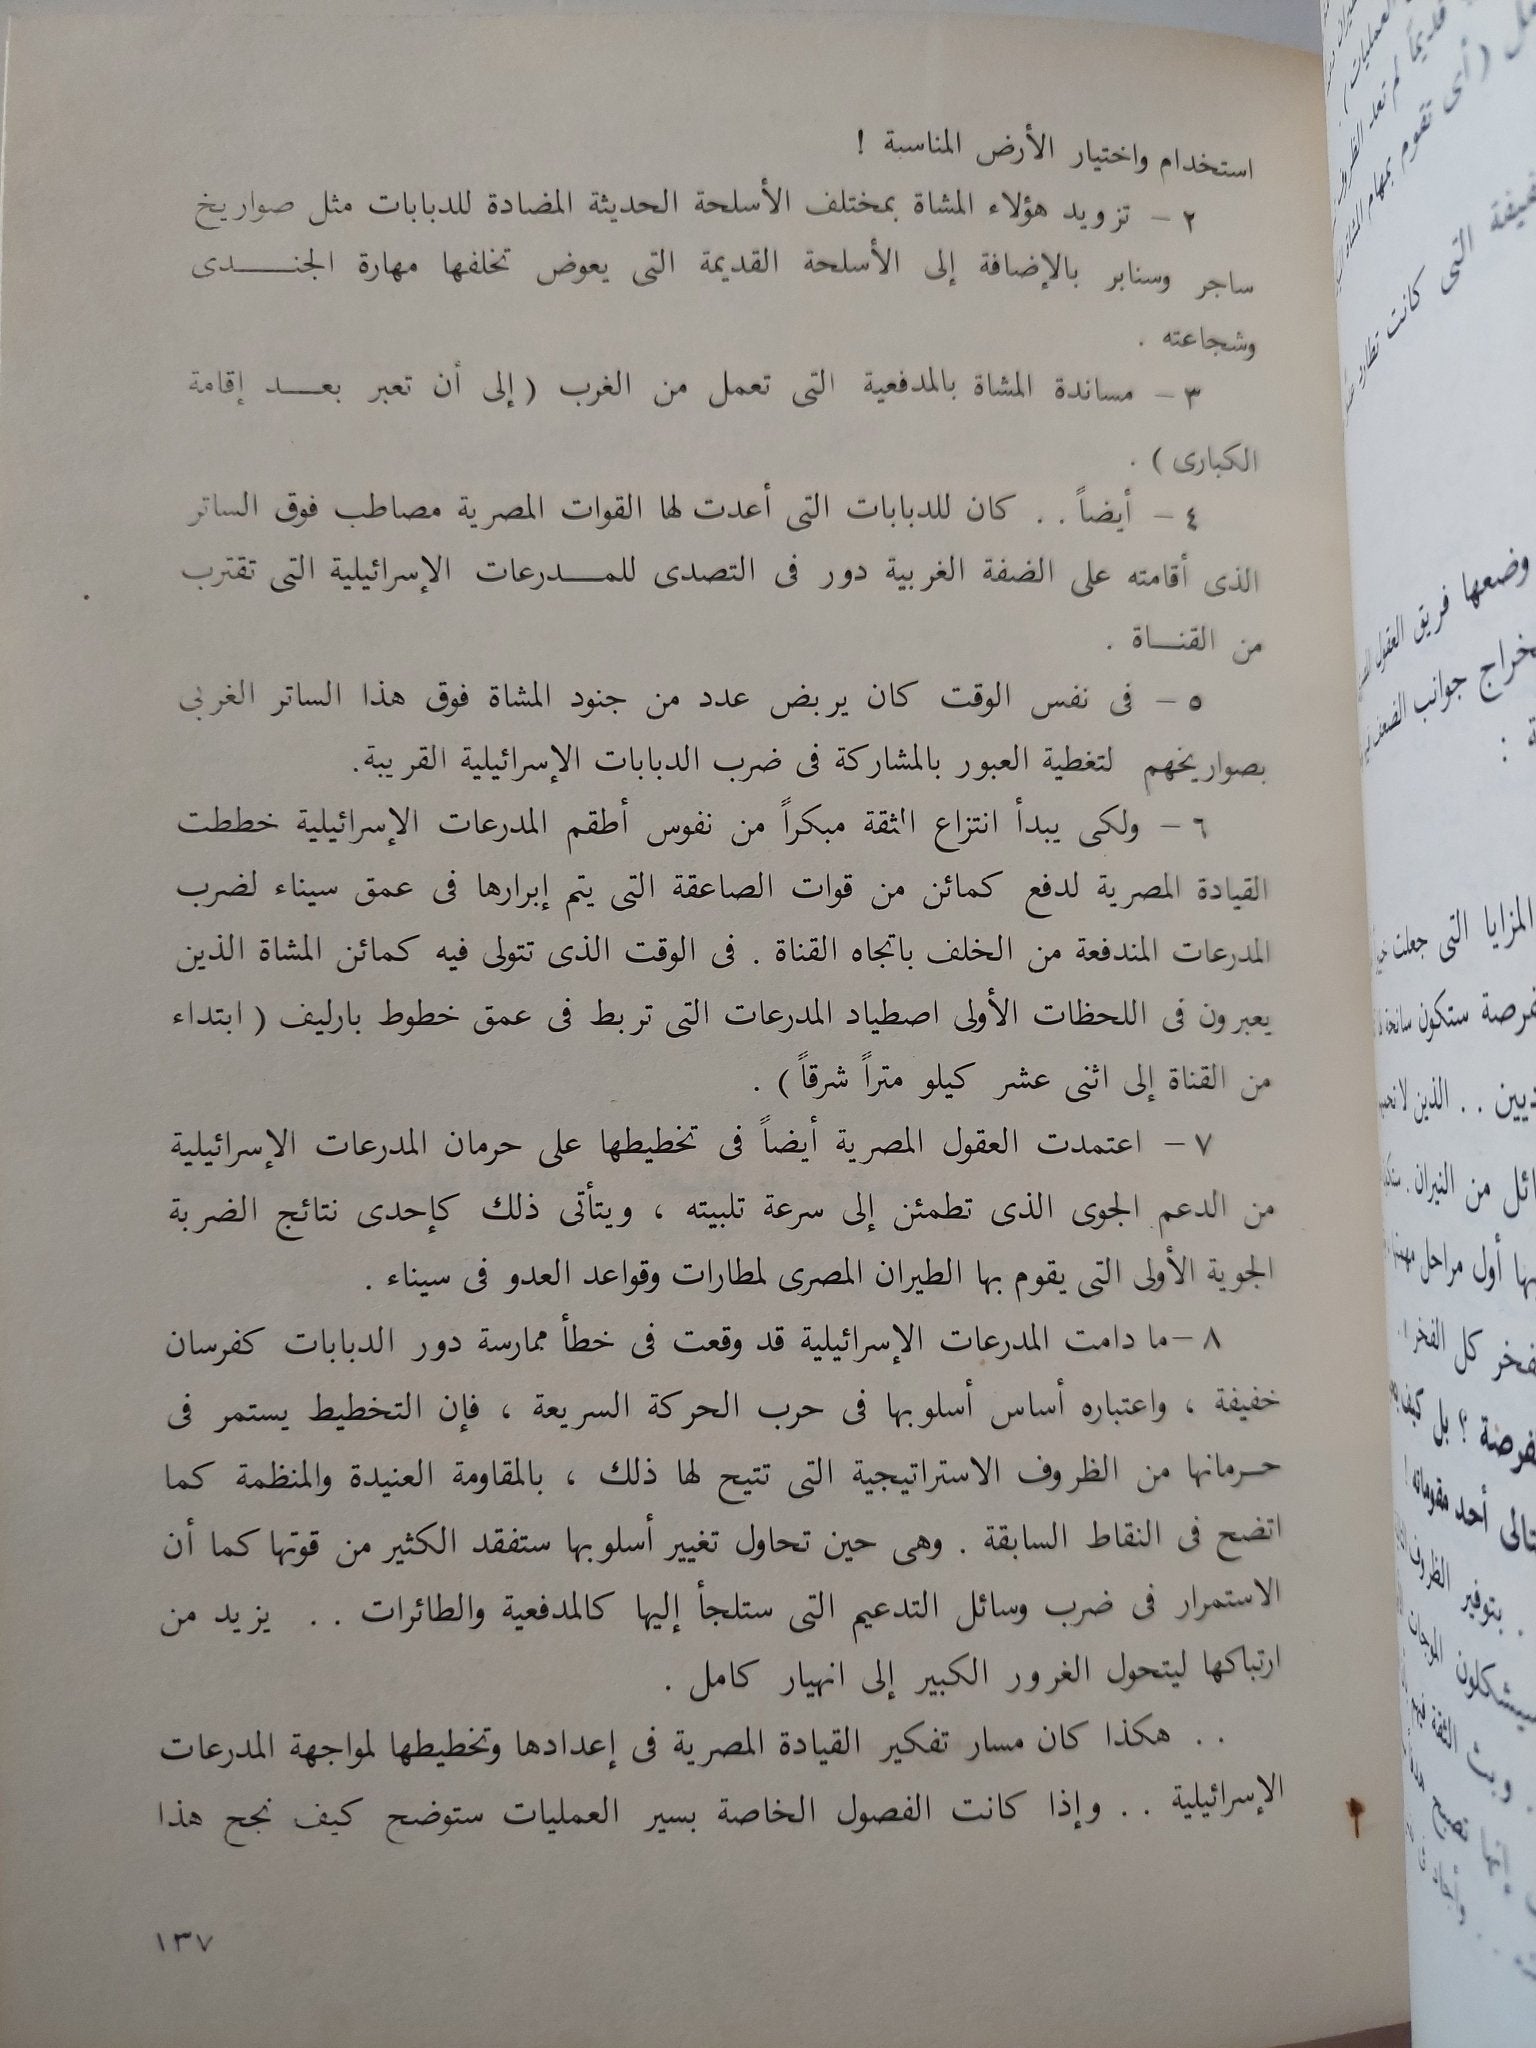 استخدام واختيار الأرض المناسبة !
٢ – تزويد هؤلاء المشاة بمختلف الأسلحة الحديثة المضادة للدبابات مثل صواريخ
ساجر وسنابر بالإضافة إلى الأسلحة القديمة التى يعوض تخلفها مهارة الجندى
وشجاعته .
٣ – مساندة المشاة بالمدفعية التى تعمل من الغرب ( إلى أن تعبر بعد إقامة
الكبارى ) .
٤ – أيضاً . . كان للدبابات التى أعدت لها القوات المصرية مصاطب فوق الساتر
الذى أقامته على الضفة الغربية دور فى التصدى للمدرعات الإسرائيلية التى تقترب
من القناة .
٥ – فى نفس الوقت كان يربض عدد من جنود المشاة فوق هذا الساتر الغربى
بصواريخهم لتغطية العبور بالمشاركة فى ضرب الدبابات الإسرائيلية القريبة.
٦ – ولكى يبدأ انتزاع الثقة مبكراً من نفوس أطقم المدرعات الإسرائيلية خططت
القيادة المصرية لدفع كمائن من قوات الصاعقة التى يتم إبرارها فى عمق سيناء لضرب
المدرعات المندفعة من الخلف باتجاه القناة . فى الوقت الذى تتولى فيه كمائن المشاة الذين
يعبرون فى اللحظات الأولى اصطياد المدرعات التى تربط فى عمق خطوط بارليف ( ابتداء
من القناة إلى اثنى عشر كيلو متراً شرقاً ) .
٧ – اعتمدت العقول المصرية أيضاً فى تخطيطها على حرمان المدرعات الإسرائيلية
من الدعم الجوى الذى تطمئن إلى سرعة تلبيته ، ويتأتى ذلك كإحدى نتائج الضربة
الجوية الأولى التى يقوم بها الطيران المصرى لمطارات وقواعد العدو فى سيناء .
٨ –ما دامت المدرعات الإسرائيلية قد وقعت فى خطأ ممارسة دور الدبابات كفرسان
خفيفة ، واعتباره أساس أسلوبها فى حرب الحركة السريعة ، فإن التخطيط يستمر فى
حرمانها من الظروف الاستراتيجية التى تتيح لها ذلك ، بالمقاومة العنيدة والمنظمة كما
اتضح فى النقاط السابقة . وهى حين تحاول تغيير أسلوبها ستفقد الكثير من قوتها كما أن
الاستمرار فى ضرب وسائل التدعيم التى ستلجأ إليها كالمدفعية والطائرات . . يزيد من
ارتباكها ليتحول الغرور الكبير إلى انهيار كامل .
. . هكذا كان مسار تفكير القيادة المصرية فى إعدادها وتخطيطها لمواجهة المدرعات
الإسرائيلية . . وإذا كانت الفصول الخاصة بسير العمليات ستوضح كيف نجح هذا
١٣٧